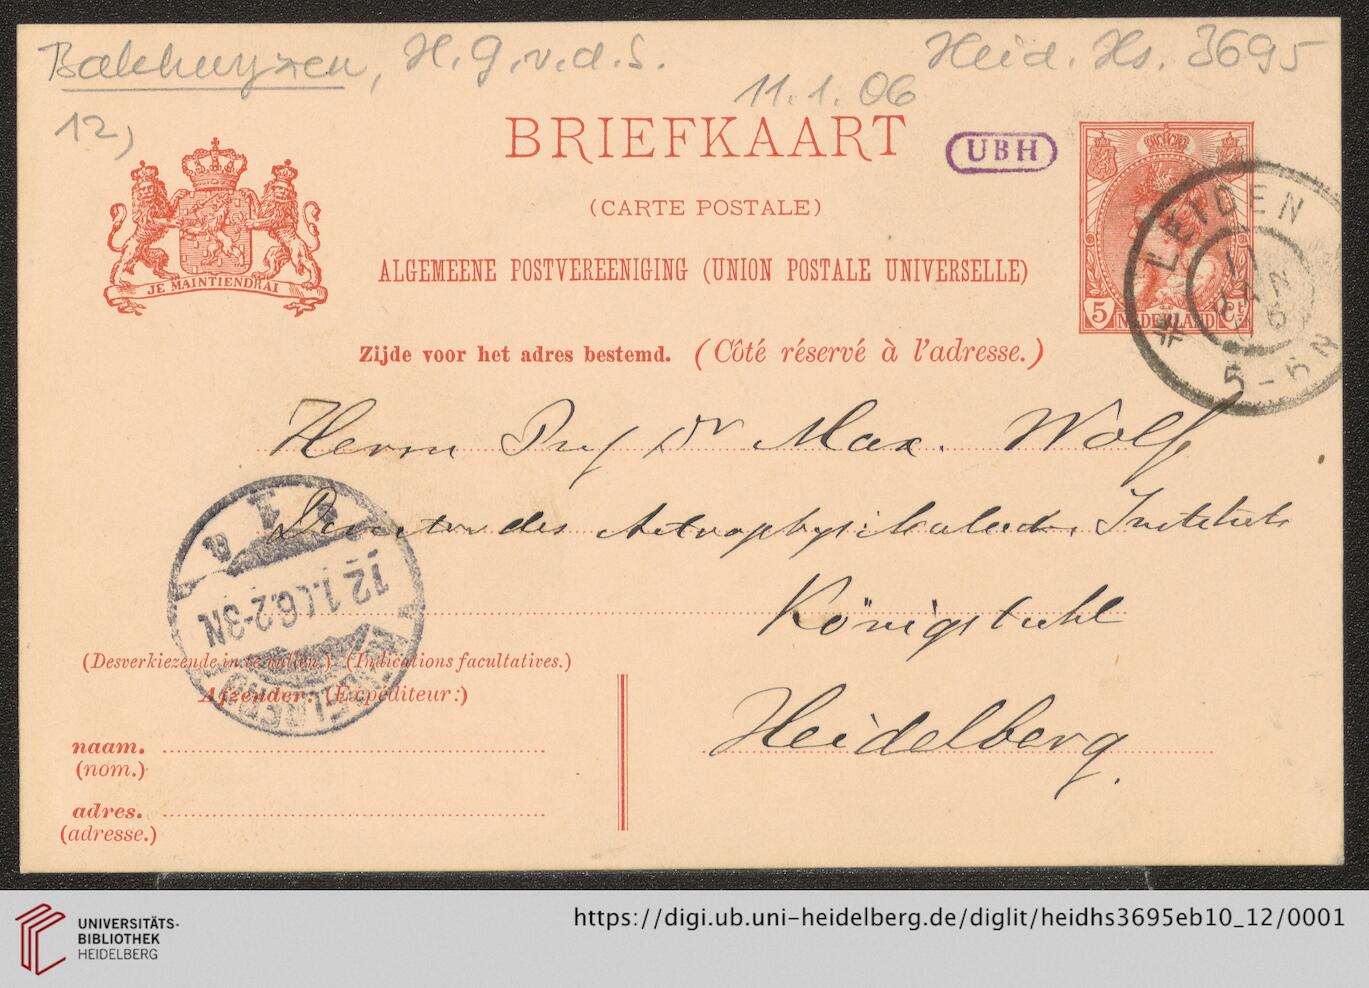 Bakhuyzen, H. G. v. d. S.
Heid. Hs. 3695
11.1.06
12)
BRIEFKAART
UBH
(CARTE POSTALE)
ALGEMEENE POSTVEREENIGING (UNION POSTALE UNIVERSELLE)
JE MAINTIENDRAI
5 NEDERLAND Ct
LEIDEN
11
JAN
06
5-6N
Zijde voor het adres bestemd. (Côté réservé à l'adresse.)
Herrn Prof Dr Max. Wolf
Director des Astrophysikalisch. Instituts
Königstuhl
Heidelberg.
12.1.06.2-3N
(Desverkiezende in te vullen.) (Indications facultatives.)
Afzender: (Expéditeur:)
naam.
(nom.)
adres.
(adresse.)
UNIVERSITÄTS-
BIBLIOTHEK
HEIDELBERG
https://digi.ub.uni-heidelberg.de/diglit/heidhs3695eb10_12/0001